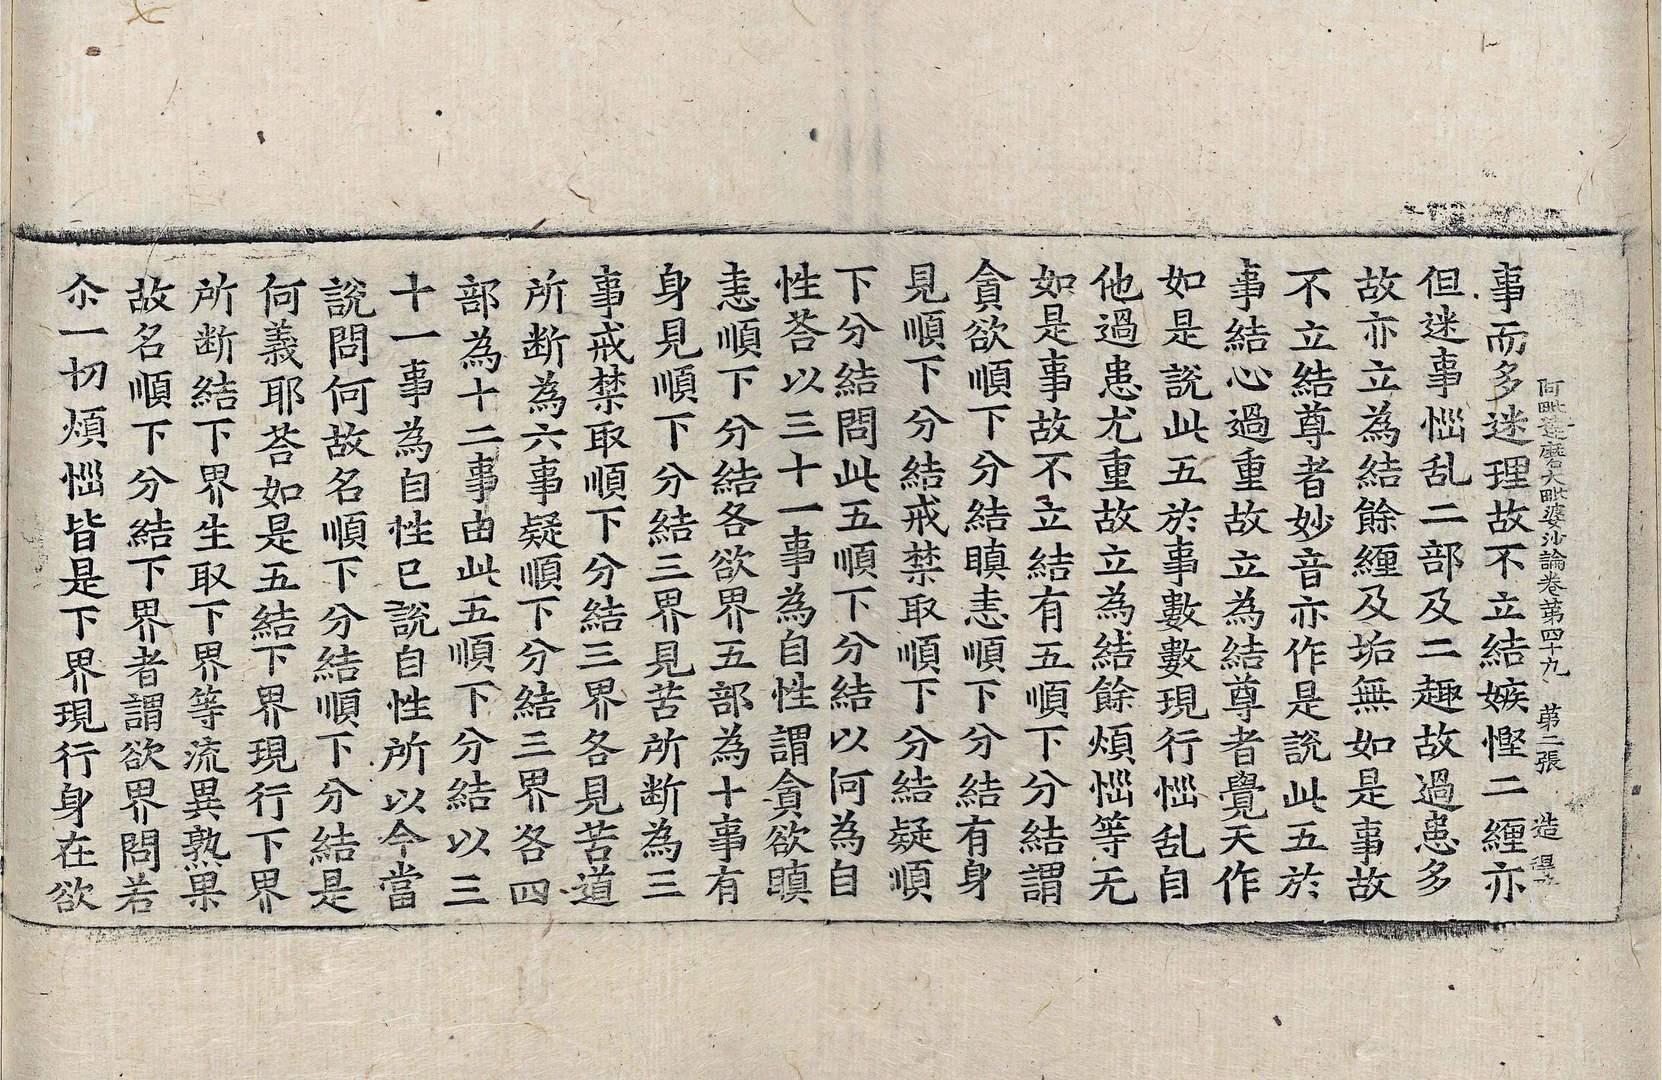 阿毗達磨大毗婆沙論卷苐四十九 苐二張 造
事而多迷理故不立結嫉慳二纒亦
但迷事惱乱二部及二趣故過患多
故亦立為結餘纒及垢無如是事故
不立結尊者妙音亦作是說此五於
事結心過重故立為結尊者覺天作
如是說此五於事數數現行惱乱自
他過患尤重故立為結餘煩惱等无
如是事故不立結有五順下分結謂
貪欲順下分結瞋恚順下分結有身
見順下分結戒禁取順下分結疑順
下分結問此五順下分結以何為自
性荅以三十一事為自性謂貪欲瞋
恚順下分結各欲界五部為十事有
身見順下分結三界見苦所断為三
事戒禁取順下分結三界各見苦道
所断為六事疑順下分結三界各四
部為十二事由此五順下分結以三
十一事為自性已說自性所以今當
說問何故名順下分結順下分結是
何義耶荅如是五結下界現行下界
所断結下界生取下界等流異熟果
故名順下分結下界者謂欲界問若
尒一切煩惱皆是下界現行身在欲